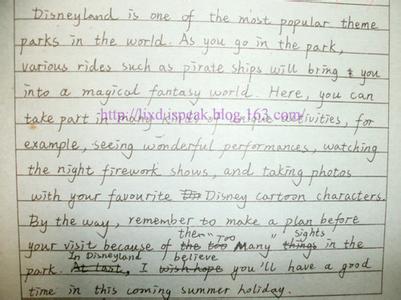 Disneyland is one of the most popular theme
parks in the world. As you go in the park,
various rides such as pirate ships will bring you
into a magical fantasy world. Here, you can
http://lixdjspeak.blog.163.com/
take part in many kinds of activities, for
example, seeing wonderful performances, watching
the night firework shows, and taking photos
with your favourite Disney cartoon characters.
By the way, remember to make a plan before
them Too sights
your visit because of the too Many things in the
In Disneyland believe
park. At last, I wish hope you'll have a good
time in this coming summer holiday.